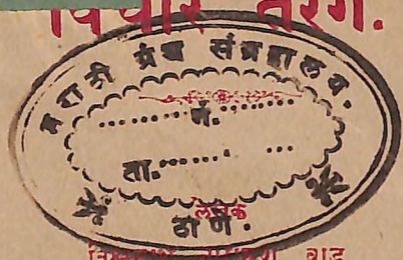 विचार तरंग.
मराठी ग्रंथ संग्रहालय.
नं.
ता.
लेखक
ठाणें.